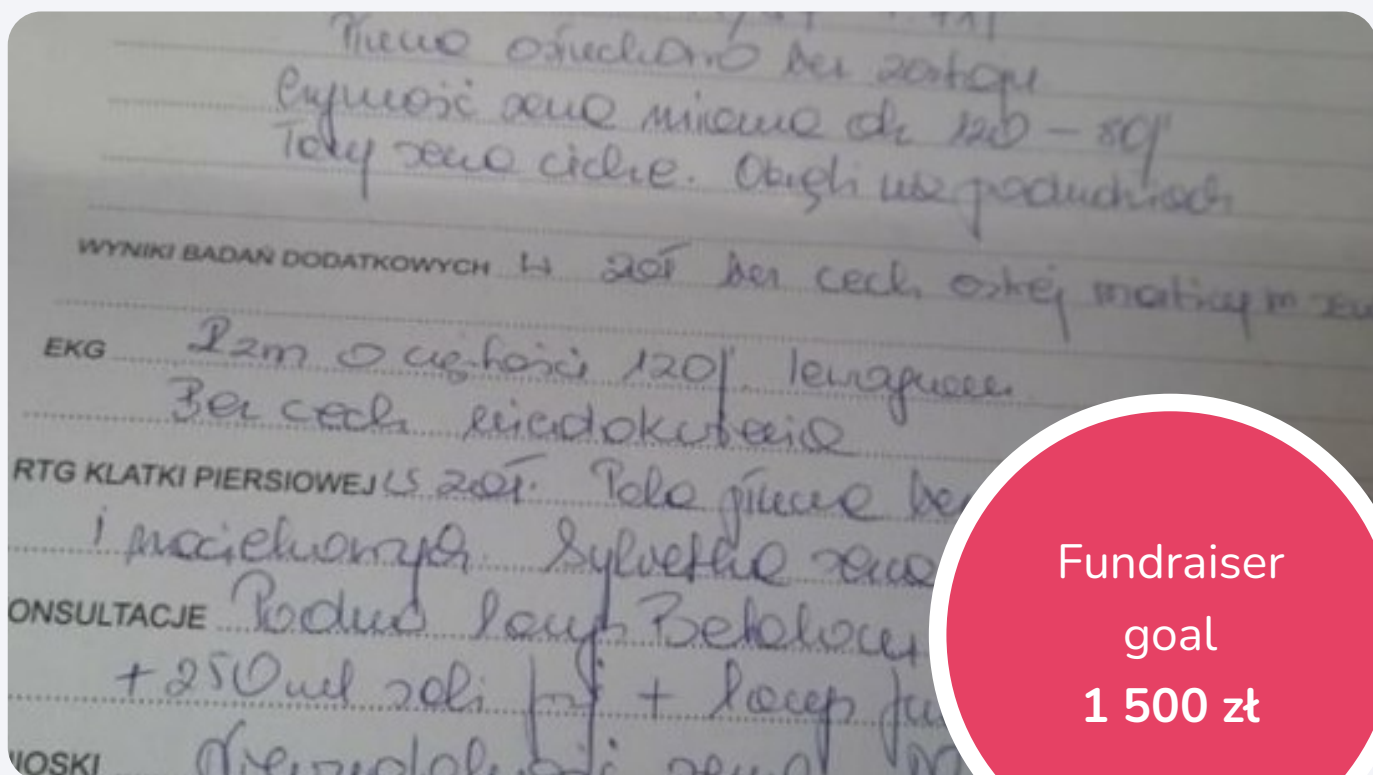 Płuca osłuchowo bez zastoju
Czynność serca miarowa ok 120 – 80/'
Tony serca ciche. Obrzęki na podudziach
WYNIKI BADAŃ DODATKOWYCH W zał bez cech ostrej
EKG Rzm o częstości 120/'
Bez cech niedokrwienia
RTG KLATKI PIERSIOWEJ W zał. Pola płucne bez
i Sylwetka serca
ONSULTACJE Podano 1amp Betaloc
+ 250 ml soli + 1amp
IOSKI Niewydolność serca
Fundraiser
goal
1 500 zł